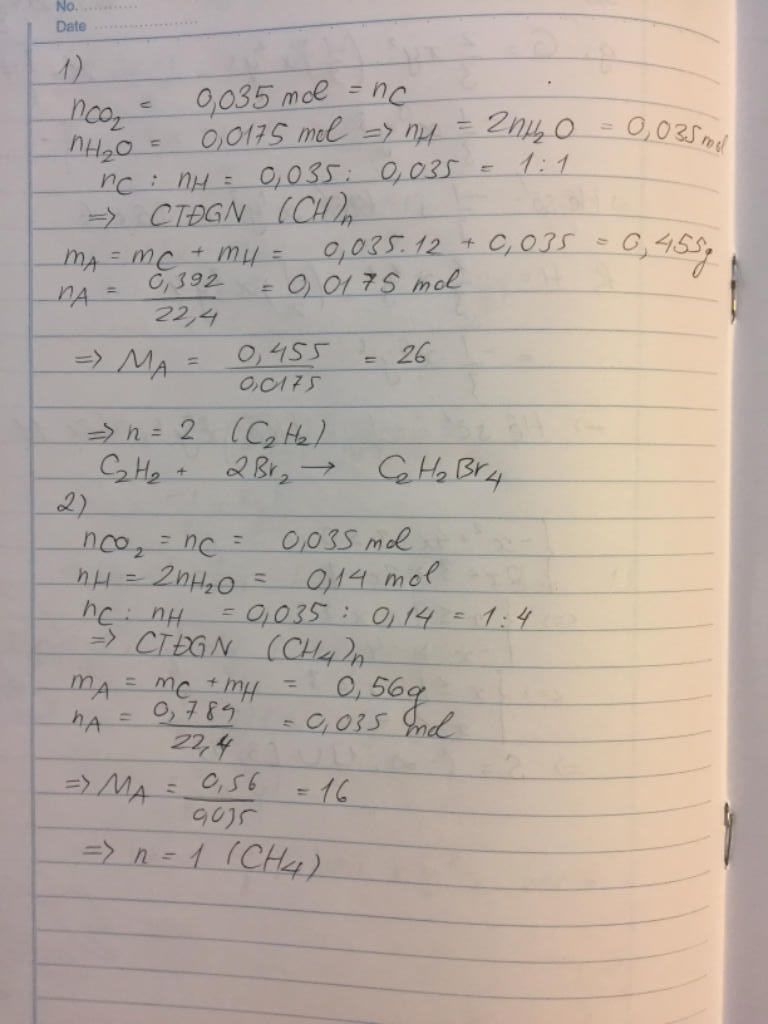 No. ............
Date ..................
1)
nCO₂ = 0,035 mol = nC
nH₂O = 0,0175 mol => nH = 2nH₂O = 0,035 mol
nC : nH = 0,035 : 0,035 = 1:1
=> CTĐGN (CH)n
mA = mC + mH = 0,035.12 + 0,035 = 0,455g
nA = 0,392/22,4 = 0,0175 mol
=> MA = 0,455/0,0175 = 26
=> n = 2 (C₂H₂)
C₂H₂ + 2Br₂ → C₂H₂Br₄
2)
nCO₂ = nC = 0,035 mol
nH = 2nH₂O = 0,14 mol
nC : nH = 0,035 : 0,14 = 1:4
=> CTĐGN (CH₄)n
mA = mC + mH = 0,56g
nA = 0,784/22,4 = 0,035 mol
=> MA = 0,56/0,035 = 16
=> n = 1 (CH₄)